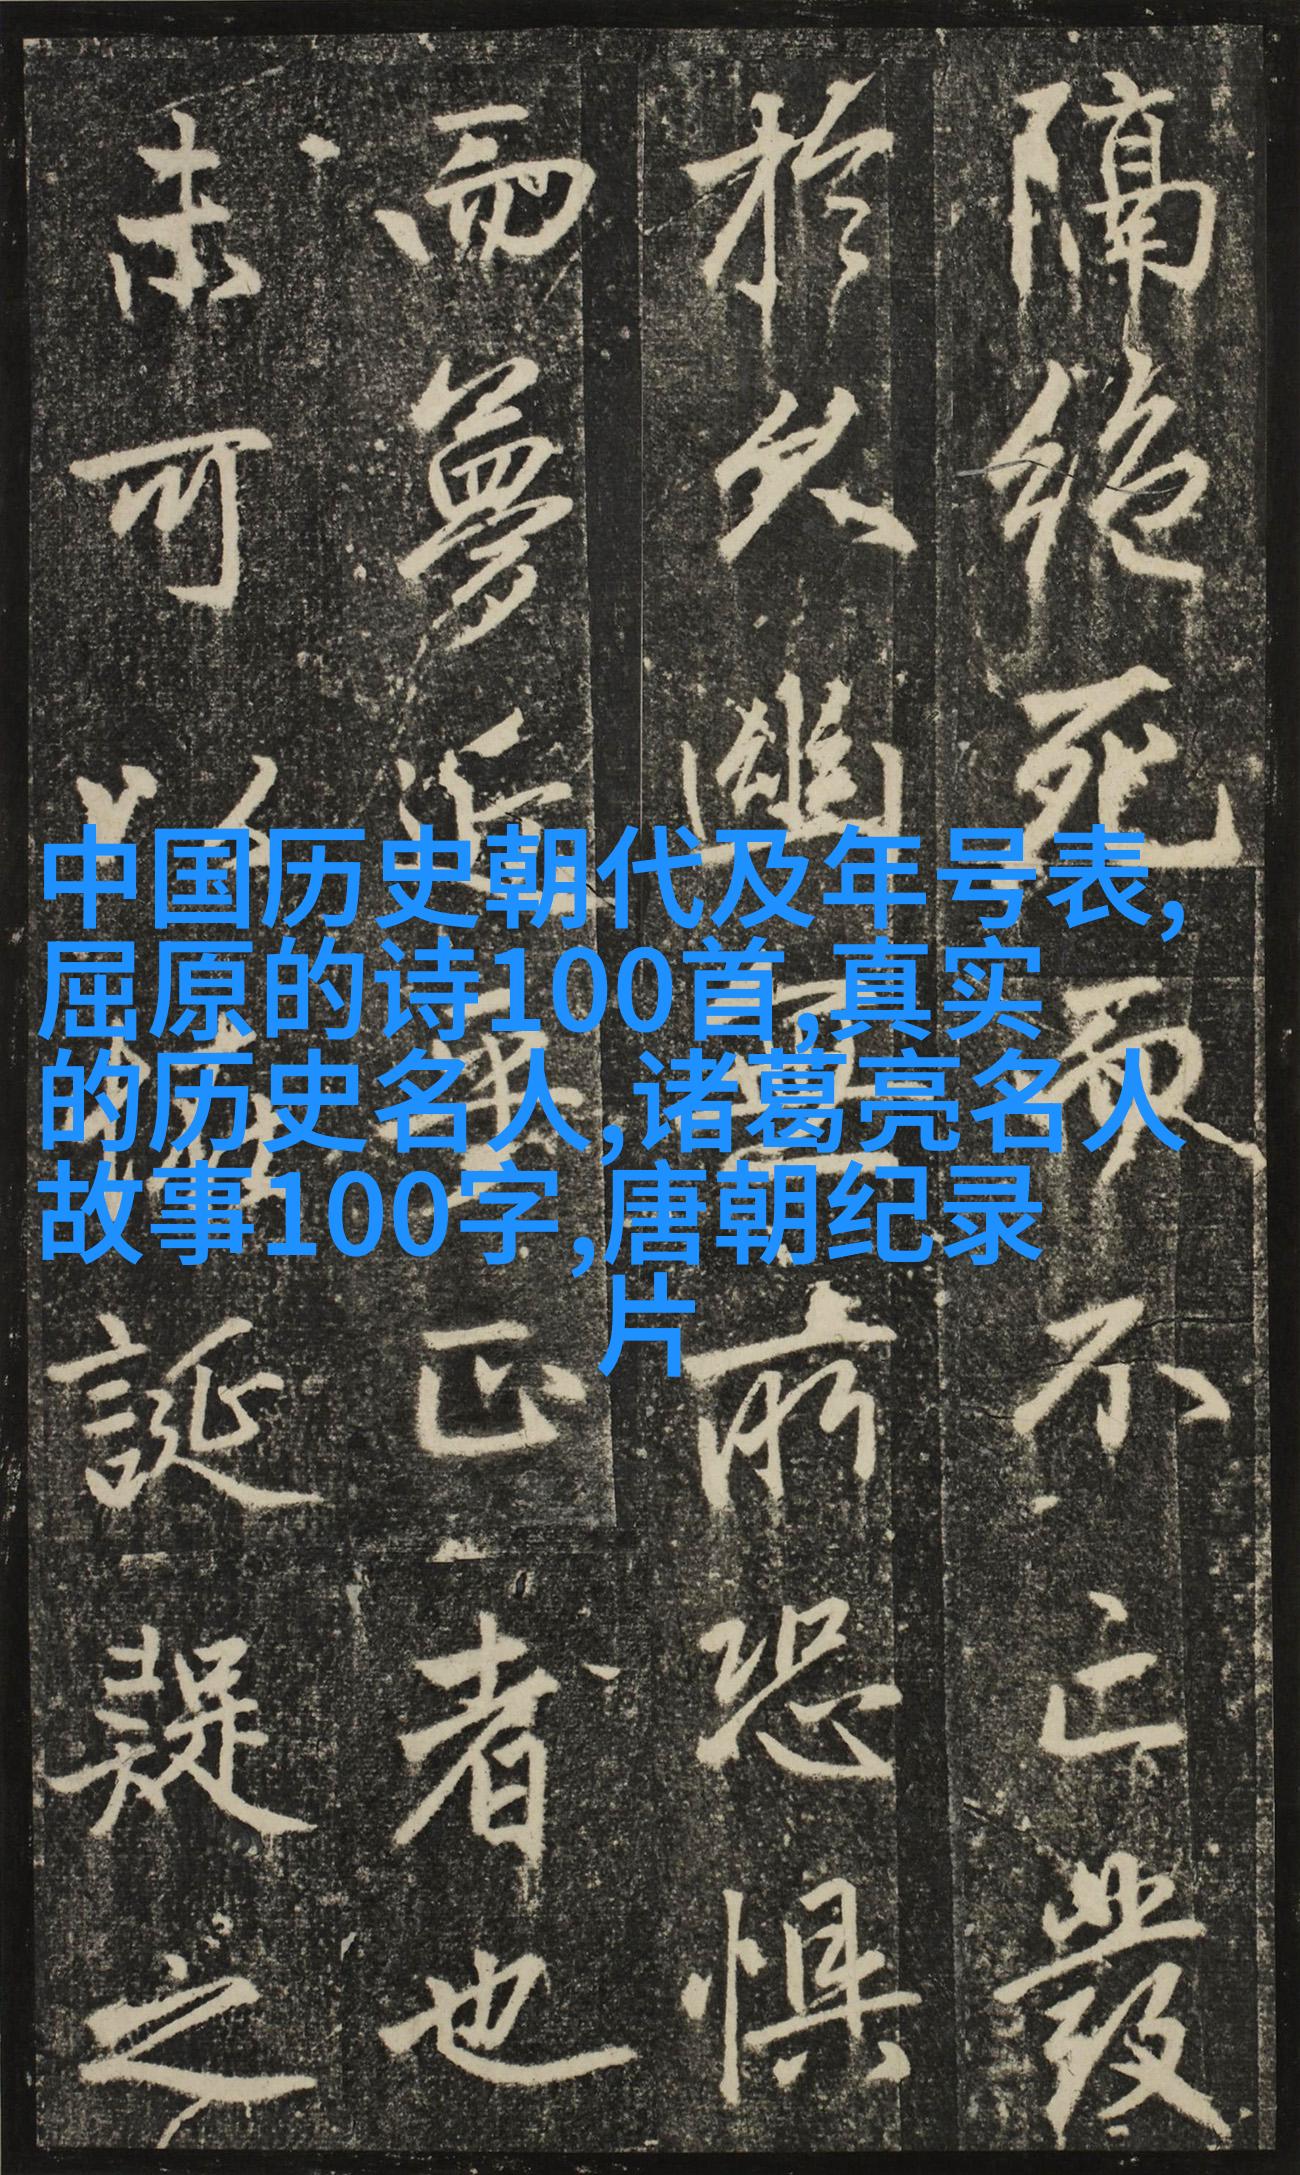 中国历史朝代及年号表,
屈原的诗100首,真实
的历史名人,诸葛亮名人
故事100字,唐朝纪录
片
隔絕死而不亡發
於久幽所恐懼
而夢正者也
未可以誕疑之